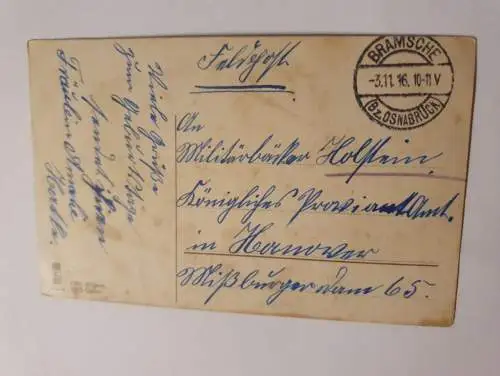 Feldpost
BRAMSCHE
-3.11.16. 10-11 V
(Bz. OSNABRÜCK)
An
Militärbäcker Holstein.
Königliches Proviant Amt.
in Hanover
Mißburger dam 65.
Viele Grüße
zum Geburtstage
sendet Ihnen
Fräulein